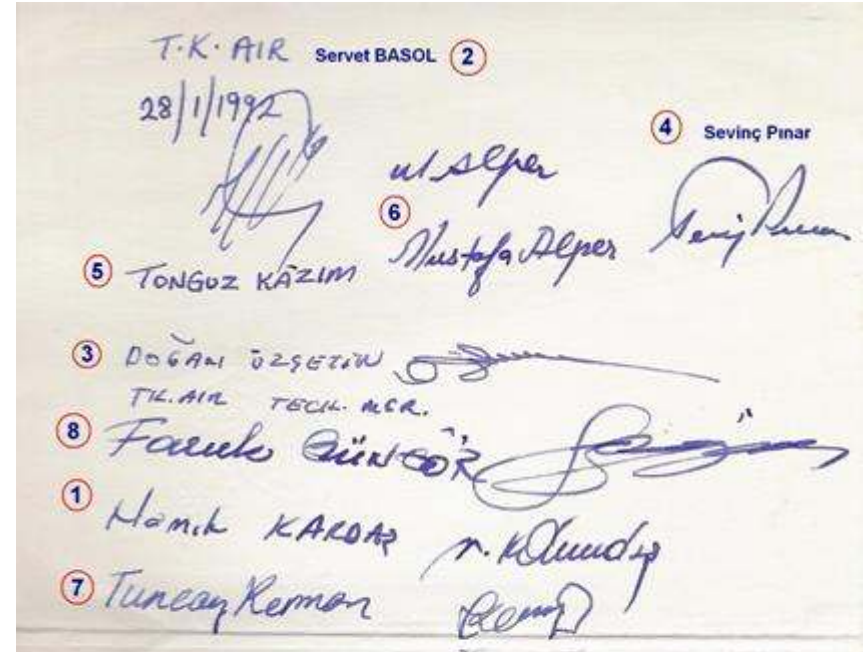 T.K. AIR Servet BASOL 2
28/1/1992
4 Sevinç Pınar
M Alper
6
Mustafa Alper
5 TONGUZ KÂZIM
3 DOĞAN ÖZÇETİN
TK. AIR TECH. MGR.
8 Faruk GÜNGÖR
1 Namık KARDAŞ
7 Tuncay Kerman